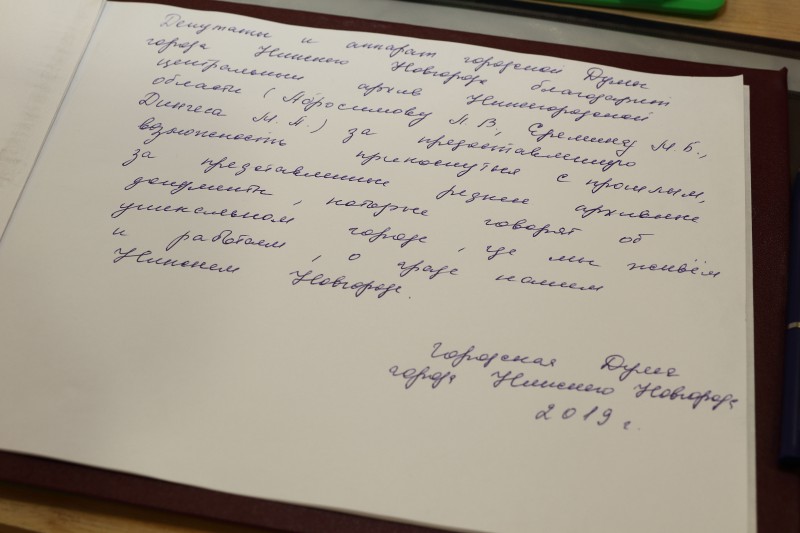 Депутаты и аппарат городской Думы
города Нижнего Новгорода благодарит
центральный архив Нижегородской
области (Абросимову Л В, Еремину М Б.,
Дингеса М. А.) за предоставленную
возможность прикоснутся с прошлым,
за представленные редкие архивные
документы, которые говорят об
уникальном городе, где мы живём
и работаем, о граде нашем
Нижнем Новгороде.
Городская Дума
города Нижнего Новгорода
2019 г.